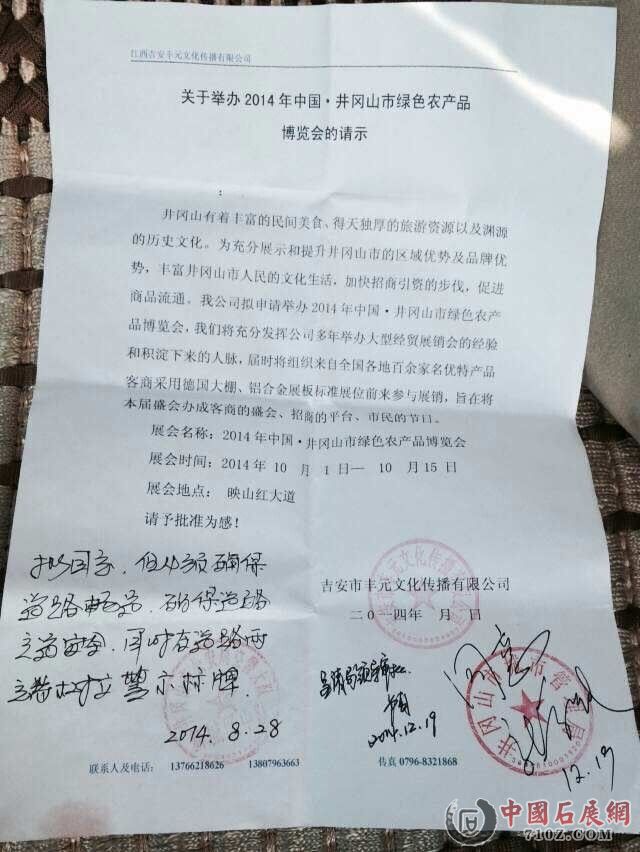 江西吉安丰元文化传播有限公司
关于举办 2014 年中国·井冈山市绿色农产品
博览会的请示
：
井冈山有着丰富的民间美食、得天独厚的旅游资源以及渊源
的历史文化。为充分展示和提升井冈山市的区域优势及品牌优
势，丰富井冈山市人民的文化生活，加快招商引资的步伐，促进
商品流通。我公司拟申请举办 2014 年中国·井冈山市绿色农产
品博览会，我们将充分发挥公司多年举办大型经贸展销会的经验
和积淀下来的人脉，届时将组织来自全国各地百余家名优特产品
客商采用德国大棚、铝合金展板标准展位前来参与展销，旨在将
本届盛会办成客商的盛会、招商的平台、市民的节日。
展会名称：2014 年中国·井冈山市绿色农产品博览会
展会时间：2014 年 10 月 1 日— 10 月 15 日
展会地点： 映山红大道
请予批准为感！
吉安市丰元文化传播有限公司
二0一四年 月 日
确保
道路 确保道路
安全，同时在道路两
警示标牌
2014.8.28
2014.12.19
12.19
联系人及电话： 13766218626 13807963663
传真 0796-8321868
中國石展網
710Z.COM